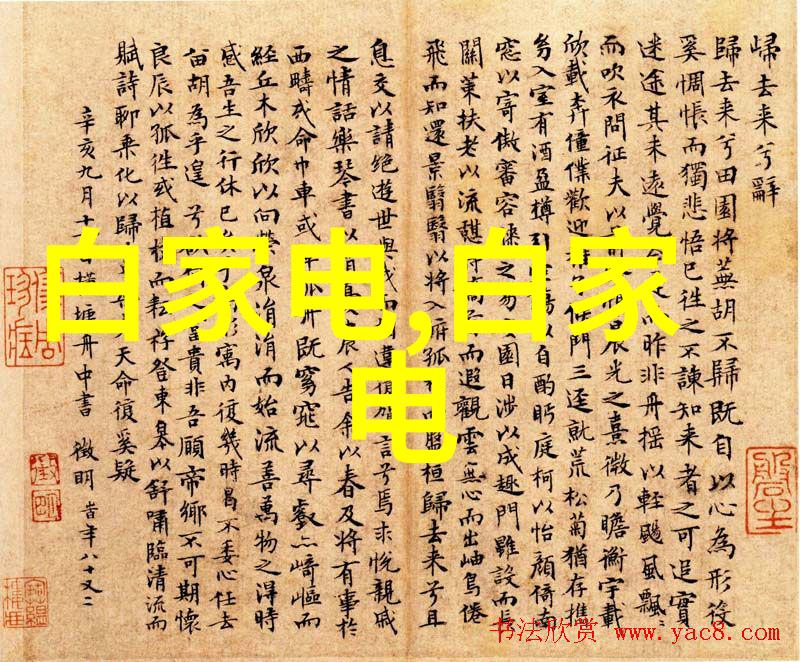 歸去来兮辭
歸去来兮田園将蕪胡不歸既自以心為形役
奚惆悵而獨悲悟已往之不諫知来者之可追實
迷途其未遠覺而昨非舟摇以輕颺風飄〻
而吹衣問征夫以前晨光之熹微乃瞻衡宇載
欣載奔僮僕歡迎稚子候門三逕就荒松菊猶存攜
幼入室有酒盈樽引觴以自酌眄庭柯以怡顔倚南
窓以寄傲審容膝之易園日涉以成趣門雖設而長
關策扶老以流憩時而遐觀雲無心而出岫鳥倦
飛而知還景翳翳以将入撫孤盤桓歸去来兮且
息交以請絶遊世與我而違復言兮焉求悦親戚
之情話樂琴書以人告余以春及将有事於
西疇或命巾車或孤舟既窈窕以尋壑亦崎嶇而
經丘木欣欣以向榮泉涓涓而始流善萬物之得時
感吾生之行休已矣形寓内復幾時曷不委心任去
留胡為乎遑兮欲富貴非吾願帝鄉不可期懷
良辰以孤往或植杖而耘耔登東皋以舒嘯臨清流而
賦詩聊乘化以歸天命復奚疑
辛亥九月十日横塘舟中書 徵明 時年八十又二
白家电,白家
电
书法欣赏 www.yac8.com